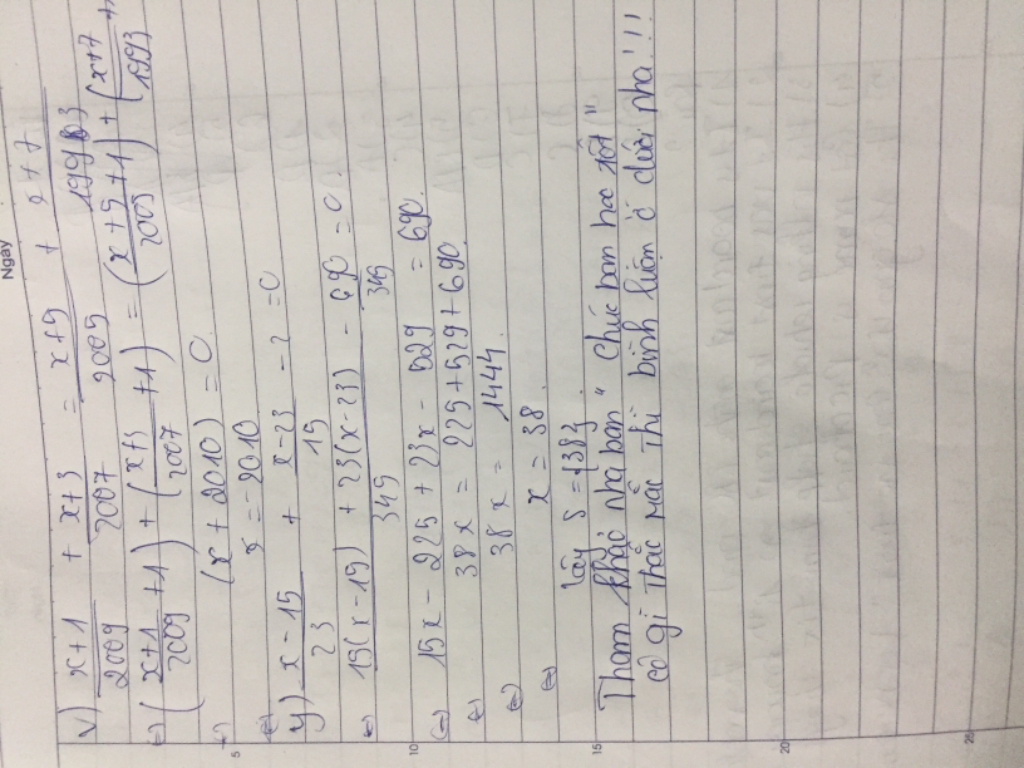 Ngày
v) x+1/2009 + x+3/2007 = x+5/2005 + x+7/1993
⇔ (x+1/2009 +1) + (x+3/2007 +1) = (x+5/2005 +1) + (x+7/1993 +
⇔ (x + 2010) = 0
⇔ x = -2010
y) x-15/23 + x-23/15 - 2 = 0
⇔ 15(x-15) + 23(x-23)/345 - 690/345 = 0
⇔ 15x - 225 + 23x - 529 = 690
⇔ 38x = 225 + 529 + 690
⇔ 38x = 1444
⇔ x = 38
Vậy S = {38}
Tham khảo nha bạn " chúc bạn học tốt "
có gì thắc mắc thì bình luận ở dưới nha!!!
5
10
15
20
25